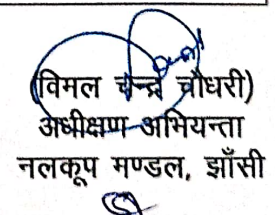 (विमल चन्द्र चौधरी)
अधीक्षण अभियन्ता
नलकूप मण्डल, झाँसी